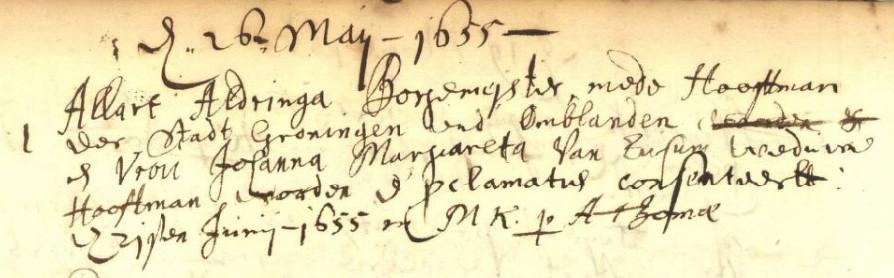 D. 26 Maij - 1655 -
Allart Aldringa Borgemeyster, mede Hooftman
der Stadt Groningen end Omblanden
Vrou Johanna Margareta Van Ewsum Weduwe
Hooftman worden d' pclamatie consenteert.
21sten Junij - 1655 M K. p A Thomæ